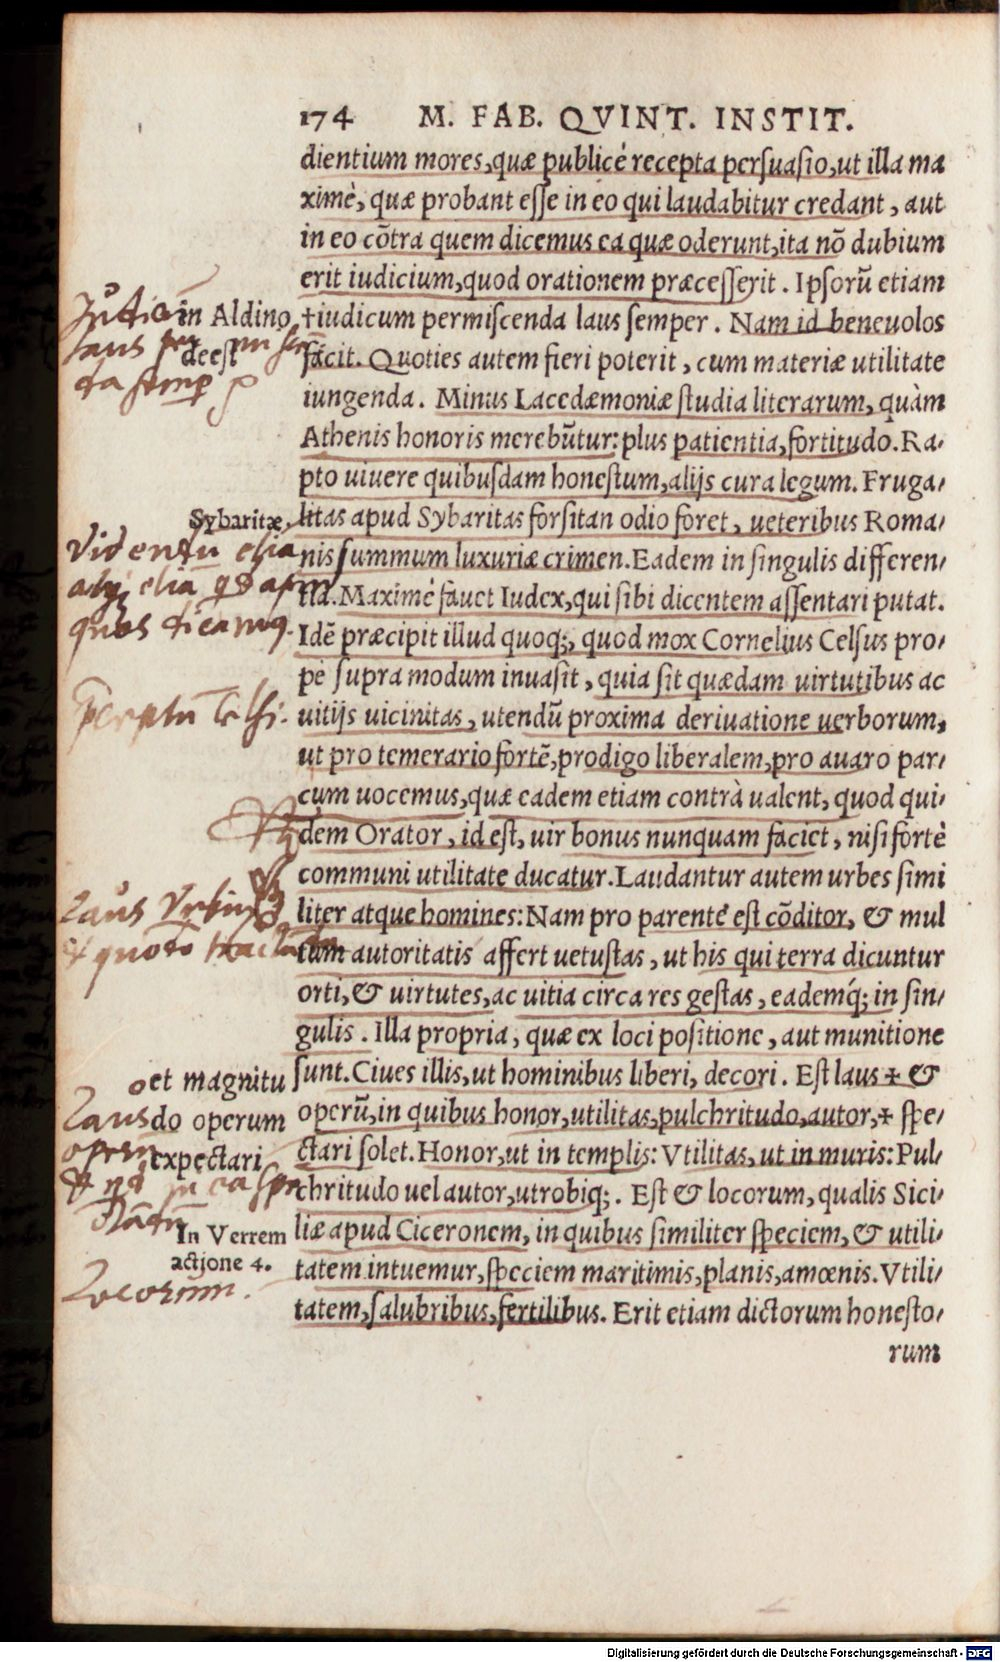 174 M. FAB. QVINT. INSTIT.
dientium mores, quæ publicè recepta persuasio, ut illa ma
ximè, quæ probant esse in eo qui laudabitur credant, aut
in eo cõtra quem dicemus ea quæ oderunt, ita nõ dubium
erit iudicium, quod orationem præcesserit. Ipsorũ etiam
in Aldino
deest
†iudicum permiscenda laus semper. Nam id beneuolos
facit. Quoties autem fieri poterit, cum materiæ utilitate
iungenda. Minus Lacedæmoniæ studia literarum, quàm
Athenis honoris merebũtur: plus patientia, fortitudo. Ra-
pto uiuere quibusdam honestum, alijs cura legum. Fruga-
Sybaritæ.
litas apud Sybaritas forsitan odio foret, ueteribus Roma-
nis summum luxuriæ crimen. Eadem in singulis differen-
tia. Maximè fauet Iudex, qui sibi dicentem assentari putat.
Idẽ præcipit illud quoq;, quod mox Cornelius Celsus pro-
pè supra modum inuasit, quia sit quædam uirtutibus ac
uitijs uicinitas, utendũ proxima deriuatione uerborum,
ut pro temerario fortẽ, prodigo liberalem, pro auaro par-
cum uocemus, quæ eadem etiam contrà ualent, quod qui-
dem Orator, id est, uir bonus nunquam faciet, nisi fortè
communi utilitate ducatur. Laudantur autem urbes simi
Laus Vrbium
liter atque homines: Nam pro parente est cõditor, & mul
tum autoritatis affert uetustas, ut his qui terra dicuntur
orti, & uirtutes, ac uitia circa res gestas, eademq́; in sin-
gulis. Illa propria, quæ ex loci positione, aut munitione
sunt. Ciues illis, ut hominibus liberi, decori. Est laus ✢ &
et magnitu
do operum
expectari
Laus
operũ, in quibus honor, utilitas, pulchritudo, autor, ✢ spe-
ctari solet. Honor, ut in templis: Vtilitas, ut in muris: Pul-
chritudo uel autor, utrobiq;. Est & locorum, qualis Sici-
In Verrem
actione 4.
Locorum.
liæ apud Ciceronem, in quibus similiter speciem, & utili-
tatem intuemur, speciem maritimis, planis, amœnis. Vtili-
tatem, salubribus, fertilibus. Erit etiam dictorum honesto-
rum
Digitalisierung gefördert durch die Deutsche Forschungsgemeinschaft - DFG